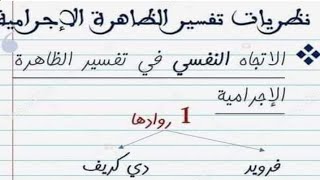 نظريات تفسير الظاهرة الإجرامية
❖ الاتجاه النفسي في تفسير الظاهرة
الإجرامية
1 روادها
فرويد دي كريف